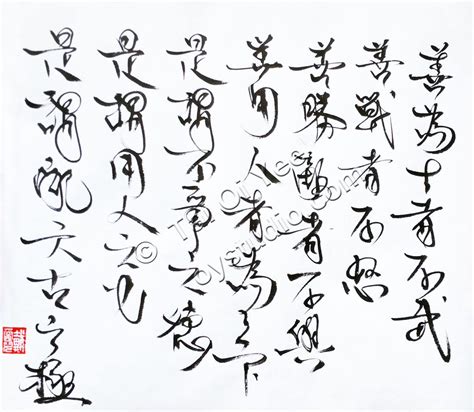 善為士者不武
善戰者不怒
善勝敵者不與
善用人者為之下
是謂不爭之德
是謂用人之力
是謂配天古之極
©